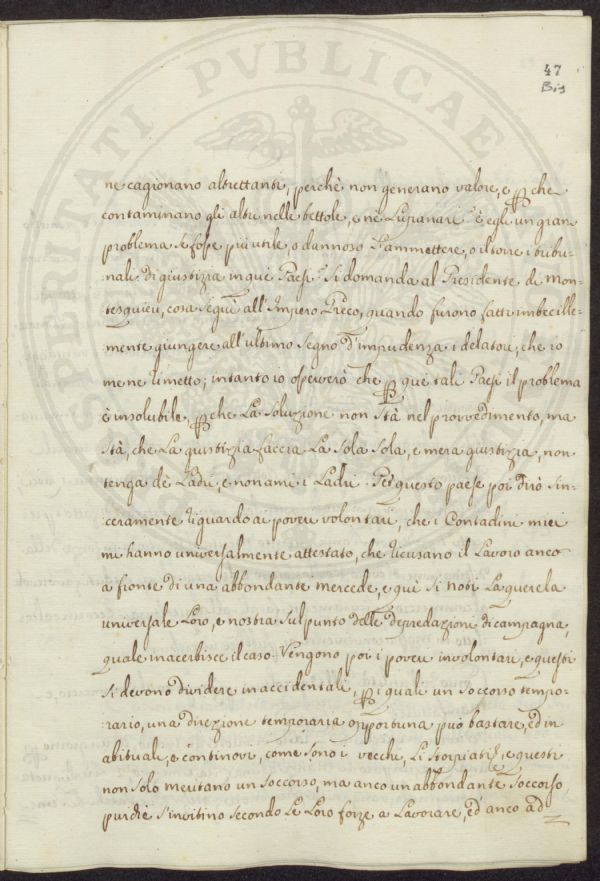 PROSPERITATI PVBLICAE
47
Bis
ne cagionano altrettanti, perchè non generano valore, e p che
contaminano gli altri nelle bettole, e nè Lupanari? è egli un gran
problema se fosse più utile, o dannoso l'ammettere, o il torre i tribu=
nali di giustizia in què Paesi? Si domanda al Presidente de Mon=
tesquieu, cosa seguì all'Impero Greco, quando furono fatti imbecille=
mente giungere all'ultimo segno d'impudenza i delatori, che io
me ne rimetto; intanto io osserverò che p que tali Paesi il problema
è insolubile, p che La soluzione non stà nel provvedimento, ma
stà, che La giustizia faccia La sola sola, e mera giustizia, non
tenga de Ladri, e non ami i Ladri. Per questo paese poi dirò sin=
ceramente riguardo ai poveri volontari, che i Contadini miei
mi hanno universalmente attestato, che ricusano il Lavoro anco
a fronte di una abbondante mercede, e què si noti La querela
universale Loro, e nostra sul punto delle depredazioni di campagna,
quale inacerbisce il caso. Vengono poi i poveri involontari, e questi
si devono dividere in accidentali, p i quali un soccorso tempo=
rario, una direzione temporaria opportuna può bastare, ed in
abituali, e continovi, come sono i vecchi, Li storpiati &c, e questi
non solo meritano un soccorso, ma anco un abbondante soccorso,
purchè s'invitino secondo Le Loro forze a Lavorare, ed anco ad=